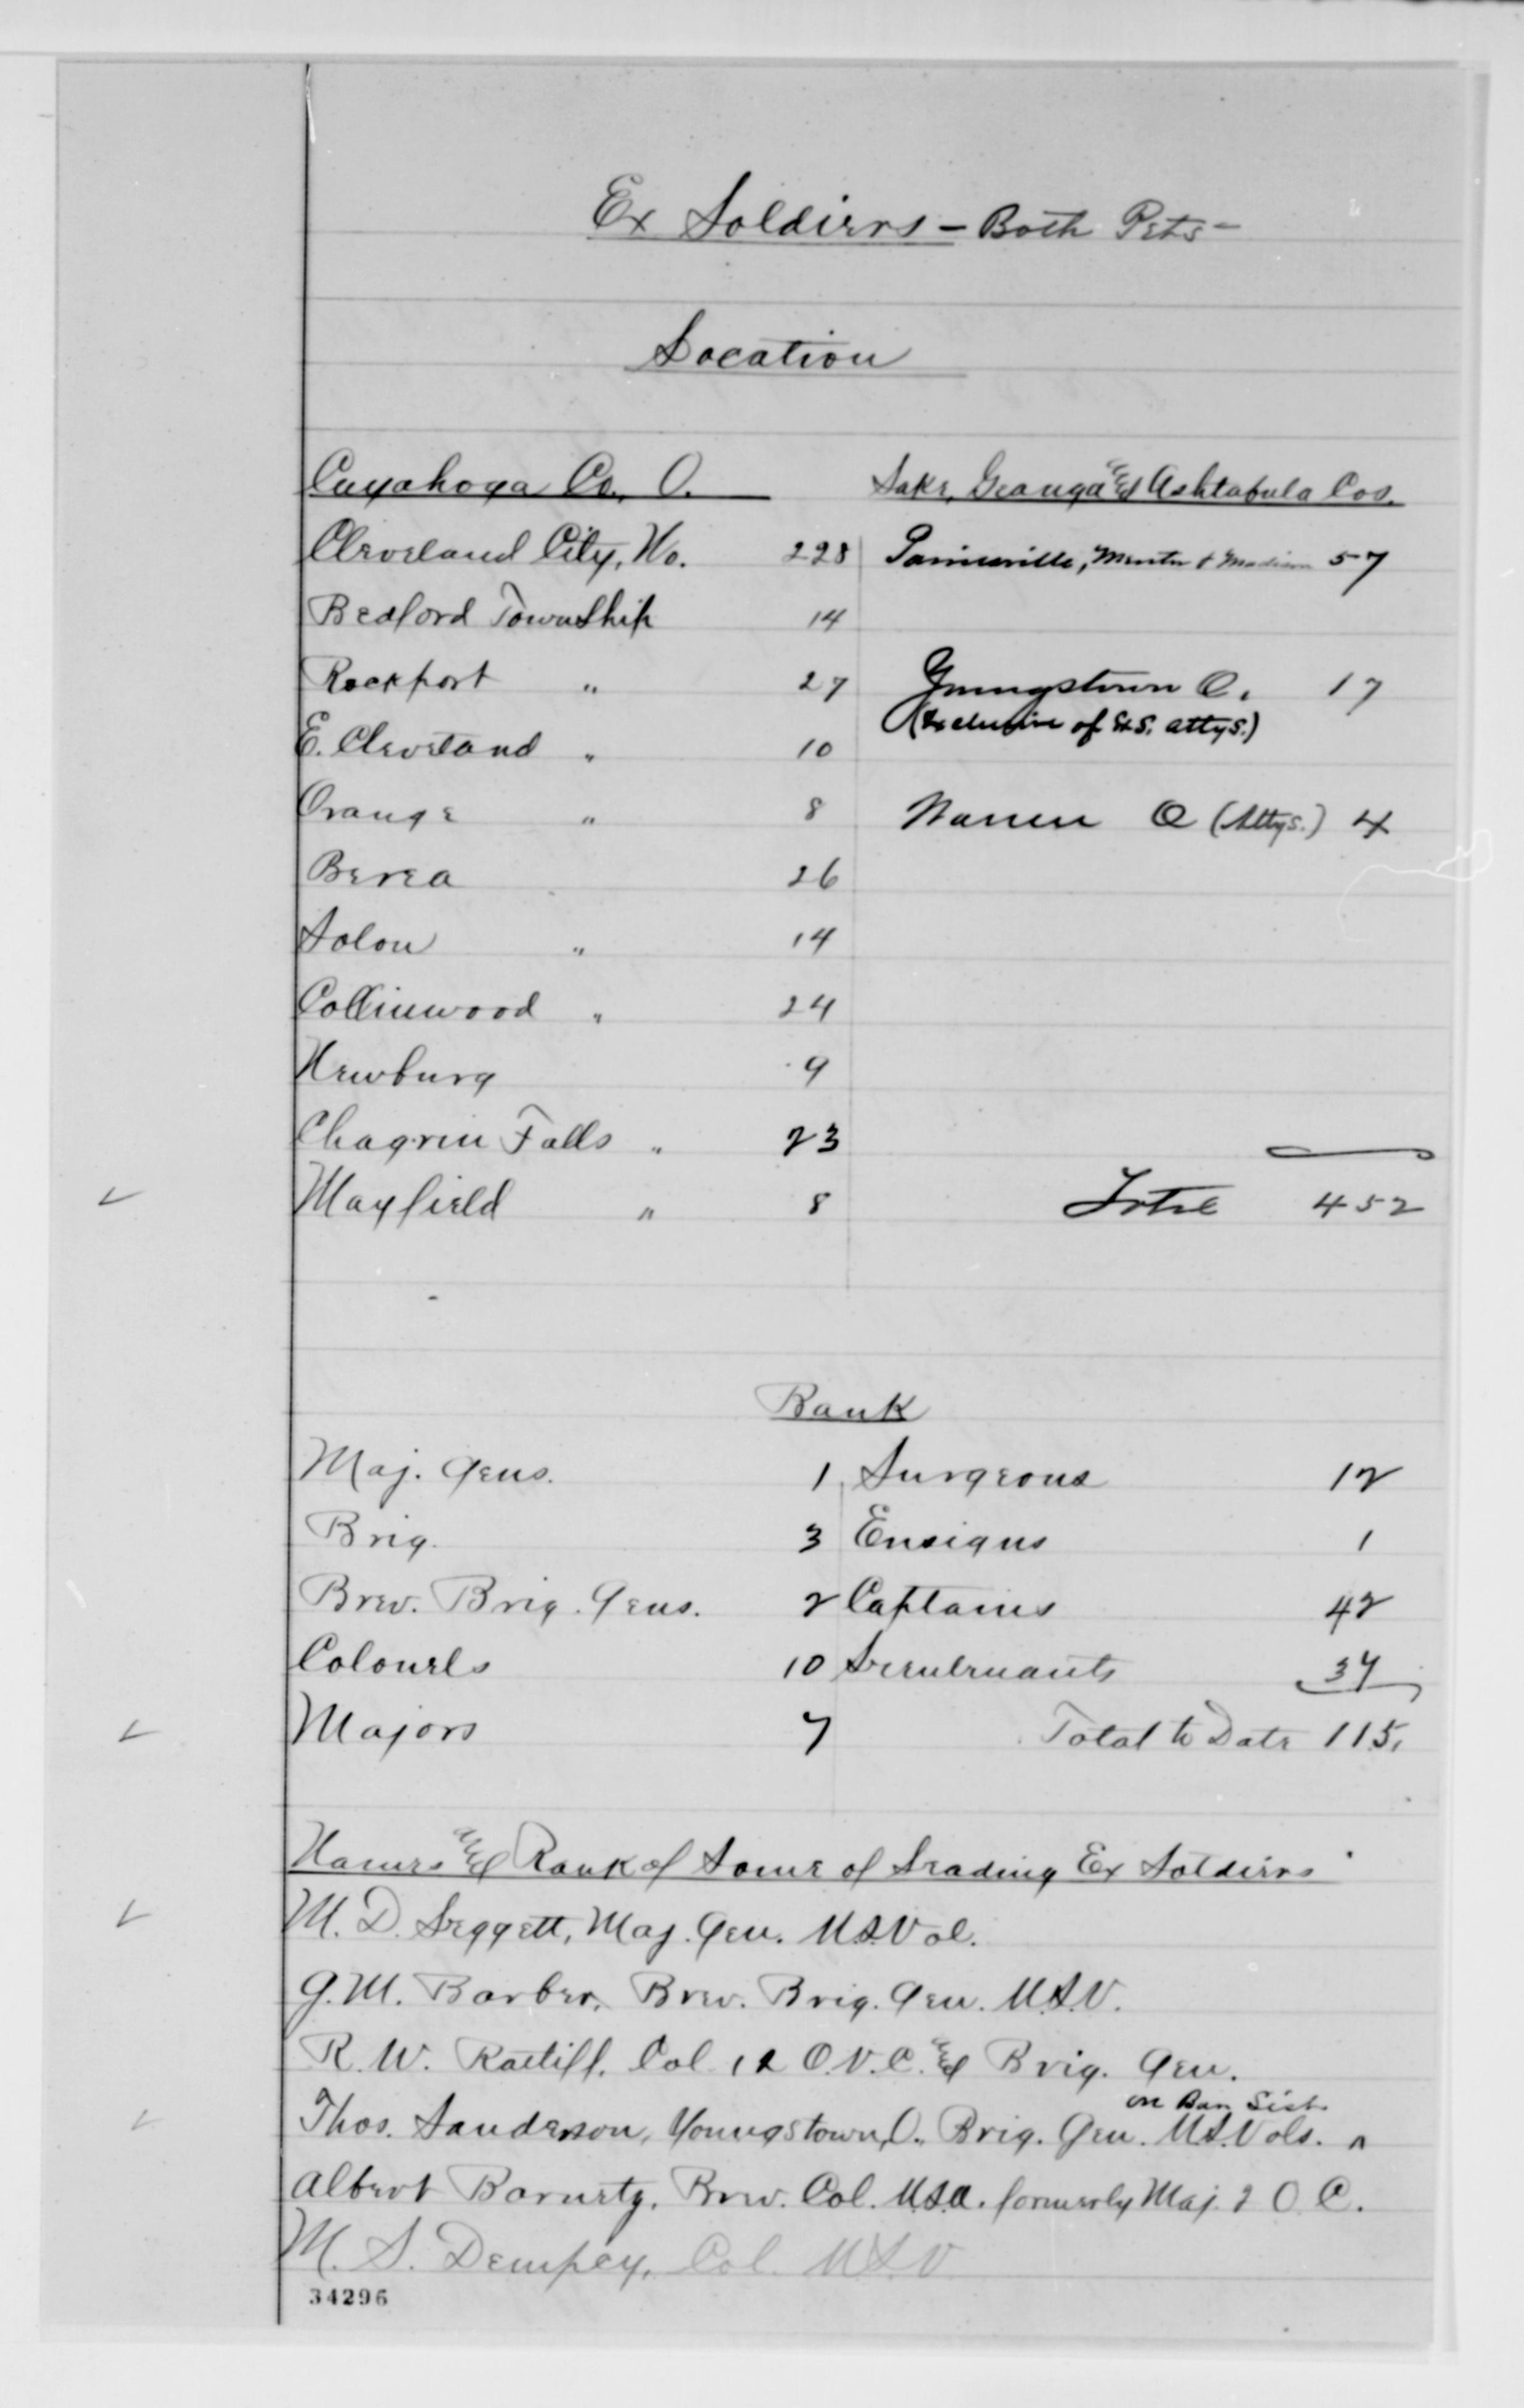 Ex Soldiers - Both Pets -
Location
Cuyahoga Co., O.
Cleveland City, No. 228
Bedford Township 14
Rockport " 27
E. Cleveland " 10
Orange " 8
Berea 26
Solon " 14
Collinwood " 24
Newburg 9
Chagrin Falls " 23
Mayfield " 8
Lake, Geauga & Ashtabula Cos.
Painesville, Mentor & Madison 57
Youngstown O. 17
(Exclusive of Attys.)
Warren O (Attys.) 4
Total 452
Rank
Maj. Gens. 1
Brig. 3
Brev. Brig. Gens. 2
Colonels 10
Majors 7
Surgeons 12
Ensigns 1
Captains 42
Lieutenants 37
Total to Date 115.
Names & Rank of Some of Leading Ex Soldiers
M. D. Leggett, Maj. Gen. U.S. Vol.
G. M. Barber, Brev. Brig. Gen. U.S.V.
R. W. Ratliff, Col. 12 O.V.C. & Brig. Gen.
Thos. Sanderson, Youngstown, O., Brig. Gen. U.S. Vols. ^ on Bar List
Albert Barnetz, Brev. Col. U.S.A. formerly Maj. 2 O. C.
M. S. Dempcy, Col. U.S.V
34296